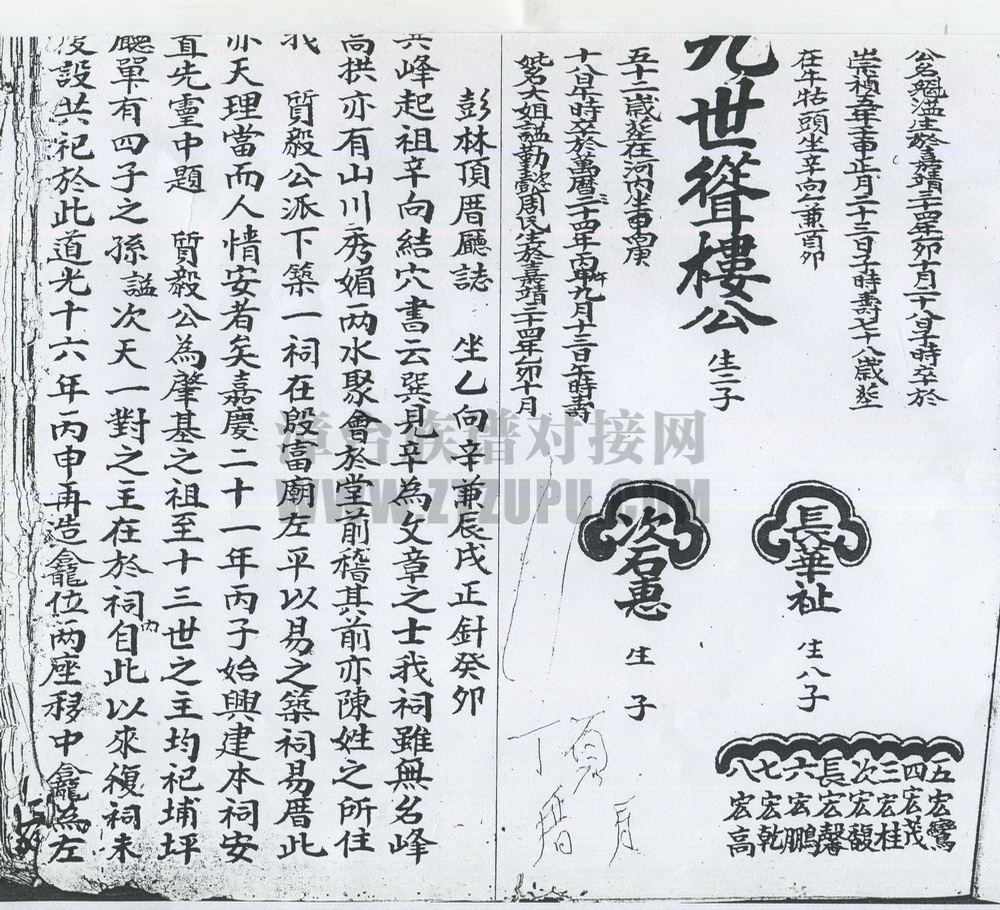 公名魁洪生於嘉靖三十四年乙卯十月二十八日子時卒於
崇禎五年壬申正月二十三日子時壽七十八歲塟
在牛牯頭坐辛向乙兼酉卯
九世聳樓公
生二子
五十二歲塟在河內坐甲向庚
十八日午時卒於萬曆三十四年丙午九月十三日午時壽
妣名大姐謚勤懿周氏生於嘉靖三十四年乙卯十月
長華祉
生八子
次石惠
生 子
五宏鸞
四宏茂
三宏桂
次宏馥
長宏馨
六宏鵬
七宏乾
八宏高
彭林頂厝廳誌 坐乙向辛兼辰戌正針癸卯
共峰起祖辛向結穴書云巽見辛為文章之士我祠雖無名峰
高拱亦有山川秀媚兩水聚會於堂前稽其前亦陳姓之所住
我 質毅公派下築一祠在殷富廟左平以易之築祠易厝此
亦天理當而人情安者矣嘉慶二十一年丙子始興建本祠安
直先靈中題 質毅公為肇基之祖至十三世之主均祀埔坪
廳單有四子之孫謚次天一對之主在於祠內自此以來復祠未
後設共祀於此道光十六年丙申再造龕位兩座移中龕為左
漳台族谱对接网
WWW.ZTZUPU.COM